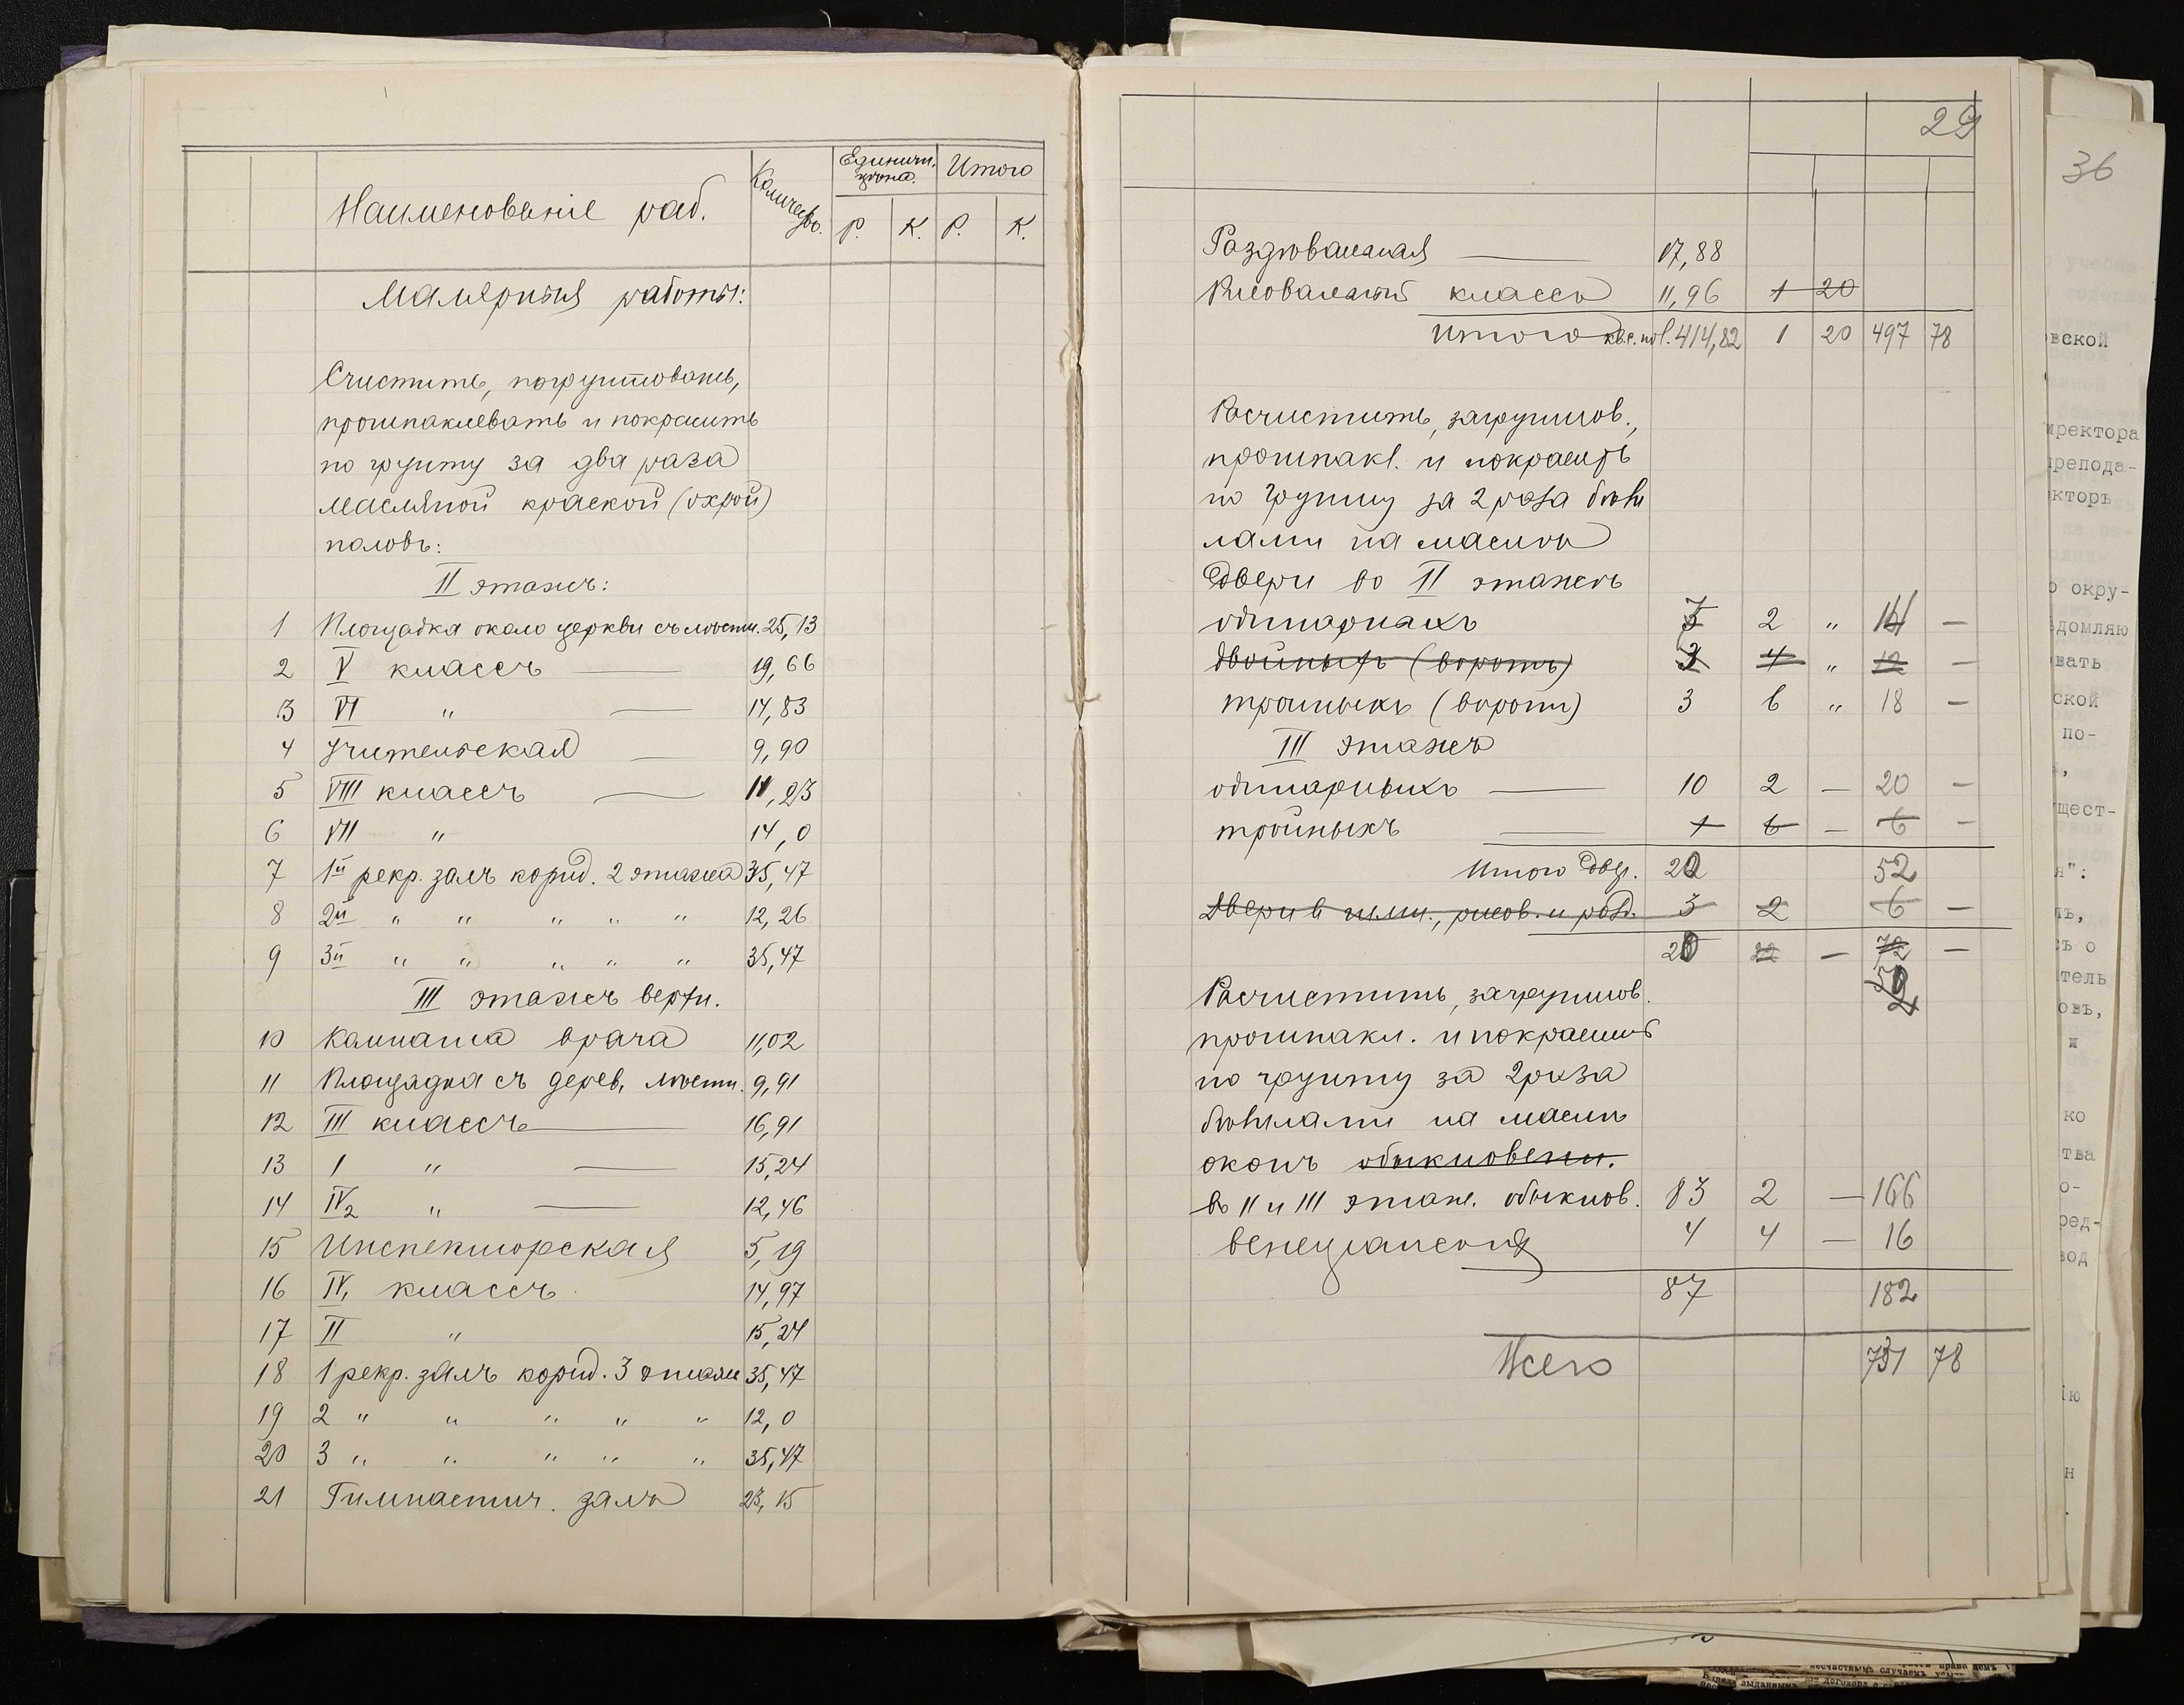 Наименованіе раб.
Количество.
Единичн. цѣна.
Итого
Р. К. Р. К.
Малярныя работы:
Счистить, погрунтовать,
прошпаклевать и покрасить
по грунту за два раза
масляной краской (охрой)
половъ:
II этажъ:
1 Площадка около церкви съ лѣстн. 25,13
2 V классъ — 19,66
3 VI " — 14,83
4 Учительская — 9,90
5 VIII классъ — 11,23
6 VII " 14,0
7 1й рекр. залъ корид. 2 этажа 35,47
8 2й " " " " " 12,26
9 3й " " " " " 35,47
III этажъ верхн.
10 Комната врача 11,02
11 Площадка съ дерев. лѣстн. 9,91
12 III классъ — 16,91
13 I " — 15,24
14 IV2 " — 12,46
15 Инспекторская 5,19
16 IV1 классъ 14,97
17 II " 15,24
18 1 рекр. залъ корид. 3 этажа 35,47
19 2 " " " " " 12,0
20 3 " " " " " 35,47
21 Гимнастич. залъ 23,15
29
Раздѣвальная — 17,88
Рисовальный классъ 11,96 1 20
Итого кв. с. пол. 414,82 1 20 497 78
Расчистить, загрунтов.,
прошпакл. и покрасить
по грунту за 2 раза бѣли
лами на маслѣ
Двери во II этажѣ
одинарныхъ 7 2 " 14 —
двойныхъ (воротъ) 3 4 " 12 —
тройныхъ (воротъ) 3 6 " 18 —
III этажъ
одинарныхъ — 10 2 — 20 —
тройныхъ — 1 6 — 6 —
Итого двер. 20 52
Двери въ гимн., рисов. и разд. 3 2 6 —
20 — 72 —
52
Расчистить, загрунтов.
прошпакл. и покрасить
по грунту за 2 раза
бѣлилами на маслѣ
оконъ обыкновенн.
въ II и III этаж. обыкнов. 83 2 — 166
венеціанскія 4 4 — 16
87 182
Всего 731 78
36
вской
иректора
препода-
кторъ
о окру-
ѣдомляю
вать
ской
по-
щест-
ъ о
тель
овъ,
и
ко
тва
о-
ред-
вод
ію
н